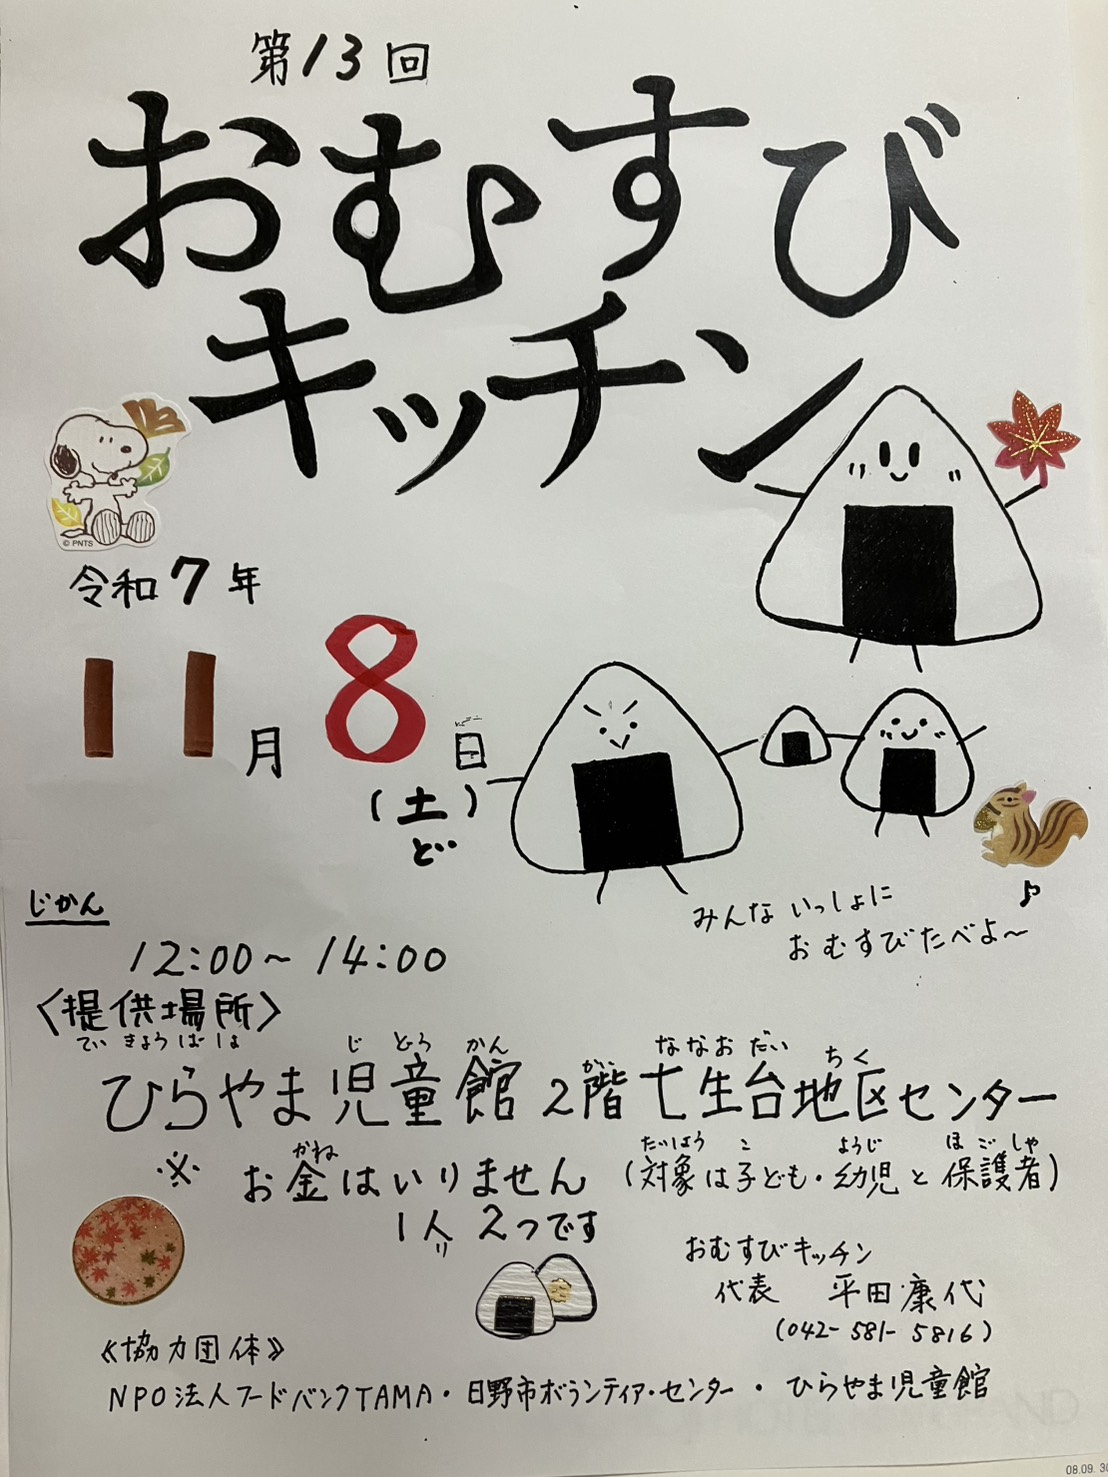 第13回
おむすび
キッチン
© PNTS
令和7年
11月8日
(土)
ど
みんないっしょに
おむすびたべよ〜
じかん
12:00〜14:00
〈提供場所〉
ていきょうばしょ
じどうかん がい ななおだい ちく
ひらやま児童館 2階 七生台地区センター
かね たいしょう こ ようじ ほごしゃ
※ お金はいりません (対象は子ども・幼児と保護者)
1人 2つです
り
おむすびキッチン
代表 平田康代
(042-581-5816)
《協力団体》
NPO法人フードバンクTAMA・日野市ボランティア・センター・ひらやま児童館